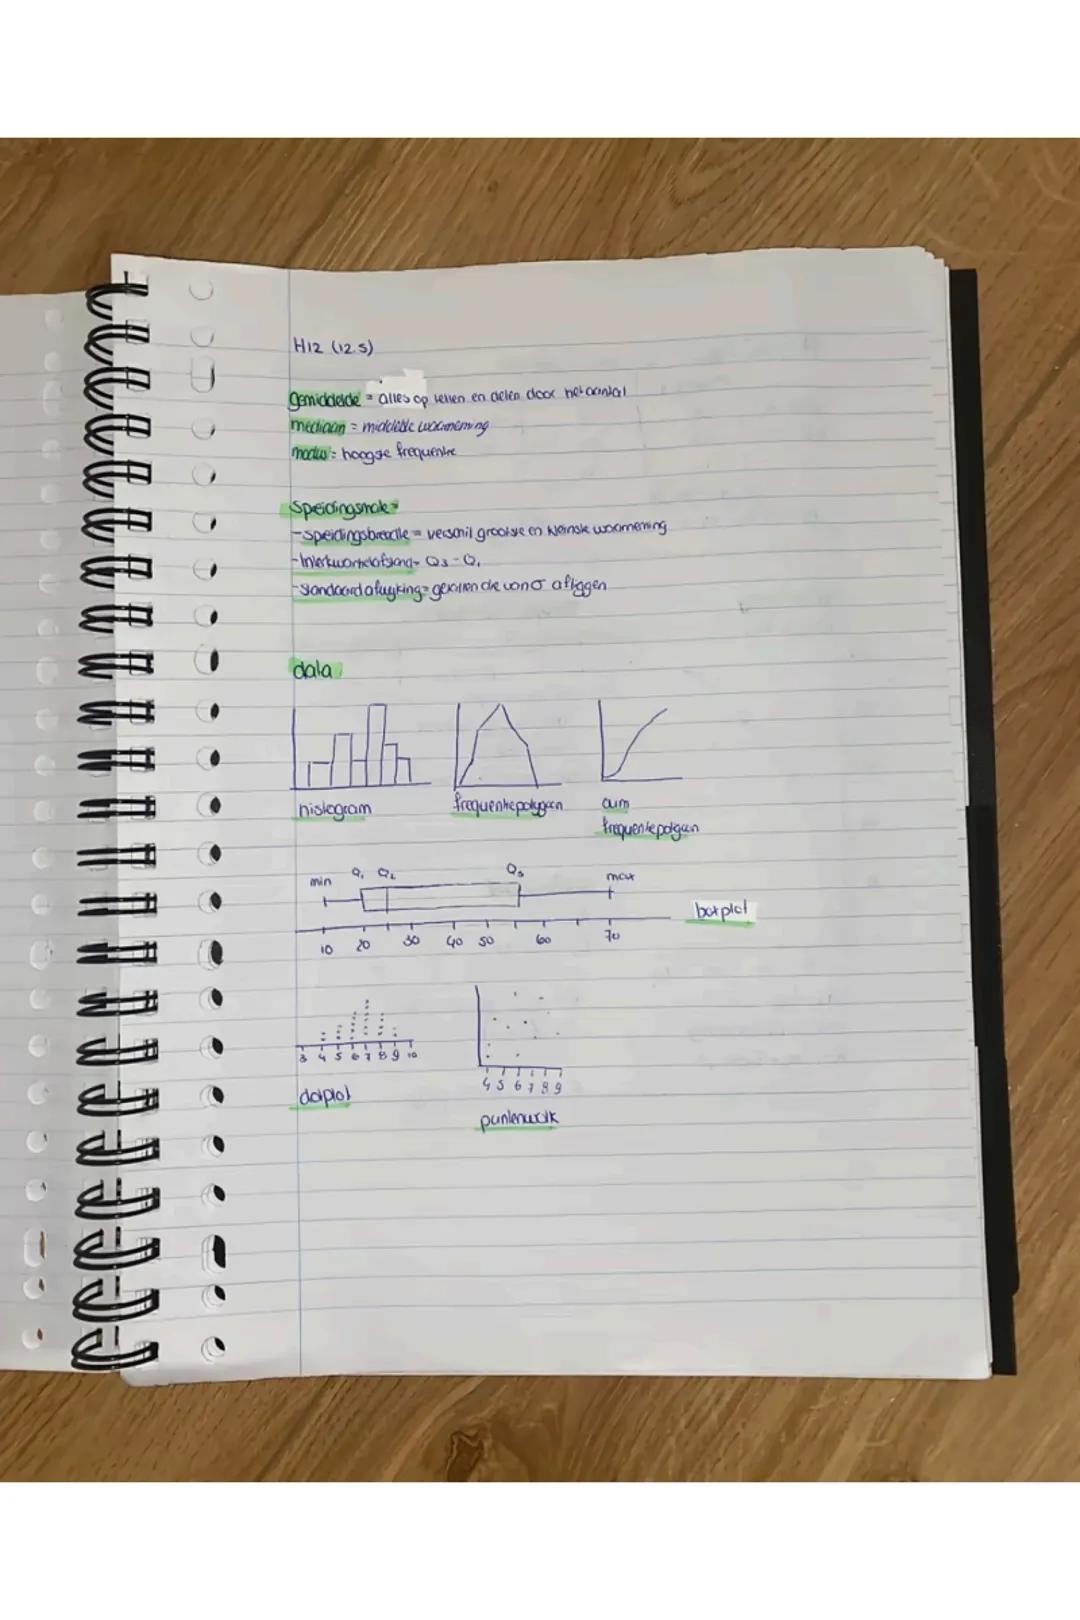 H12 (12.5)
gemiddelde = alles op tellen en delen door het aantal
mediaan = middelste waarneming
modus = hoogste frequentie
Spreidingsmate =
-spreidingsbreedte = verschil grootste en kleinste waarneming
-Interkwartielafstand = Q3 - Q1
-standaardafwijking = getallen die van σ afliggen
data
histogram frequentiepolygoon cum
frequentiepolygoon
min Q1 Q2 Q3 max
boxplot
10 20 30 40 50 60 70
3 4 5 6 7 8 9 10
4 5 6 7 8 9
dotplot
puntenwolk